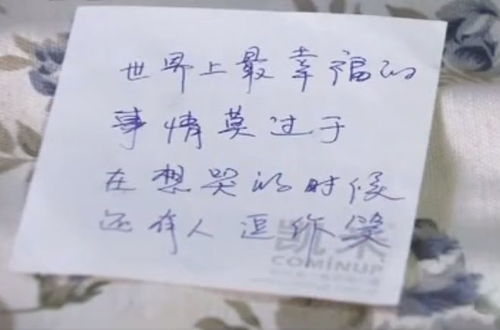 世界上最幸福的
事情莫过于
在想哭的时候
还有人逗你笑
COMINUP